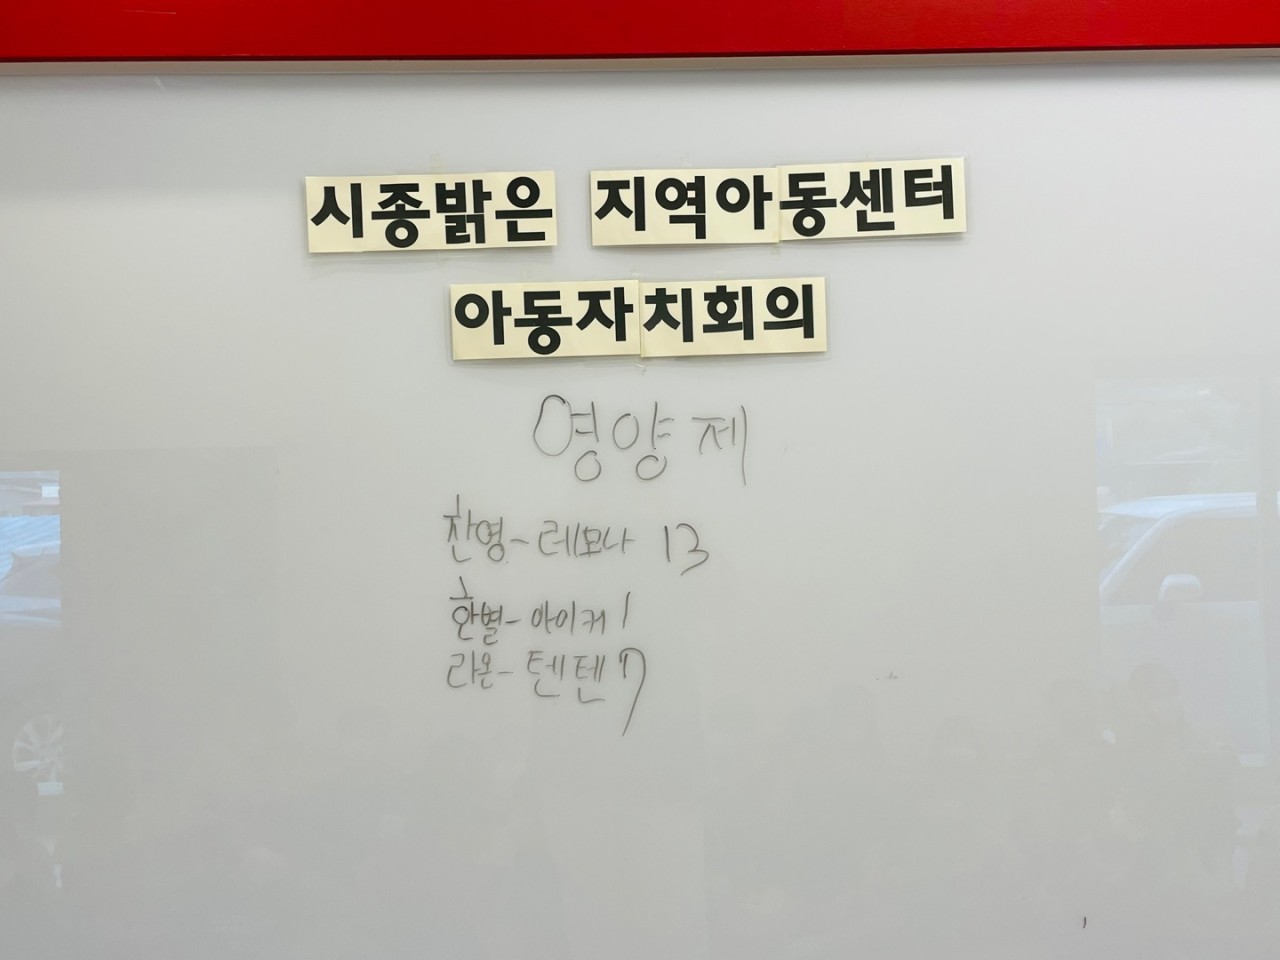 시종밝은 지역아동센터
아동자치회의
영양제
찬영-레모나 13
환별-아이커 1
라온-텐텐 7